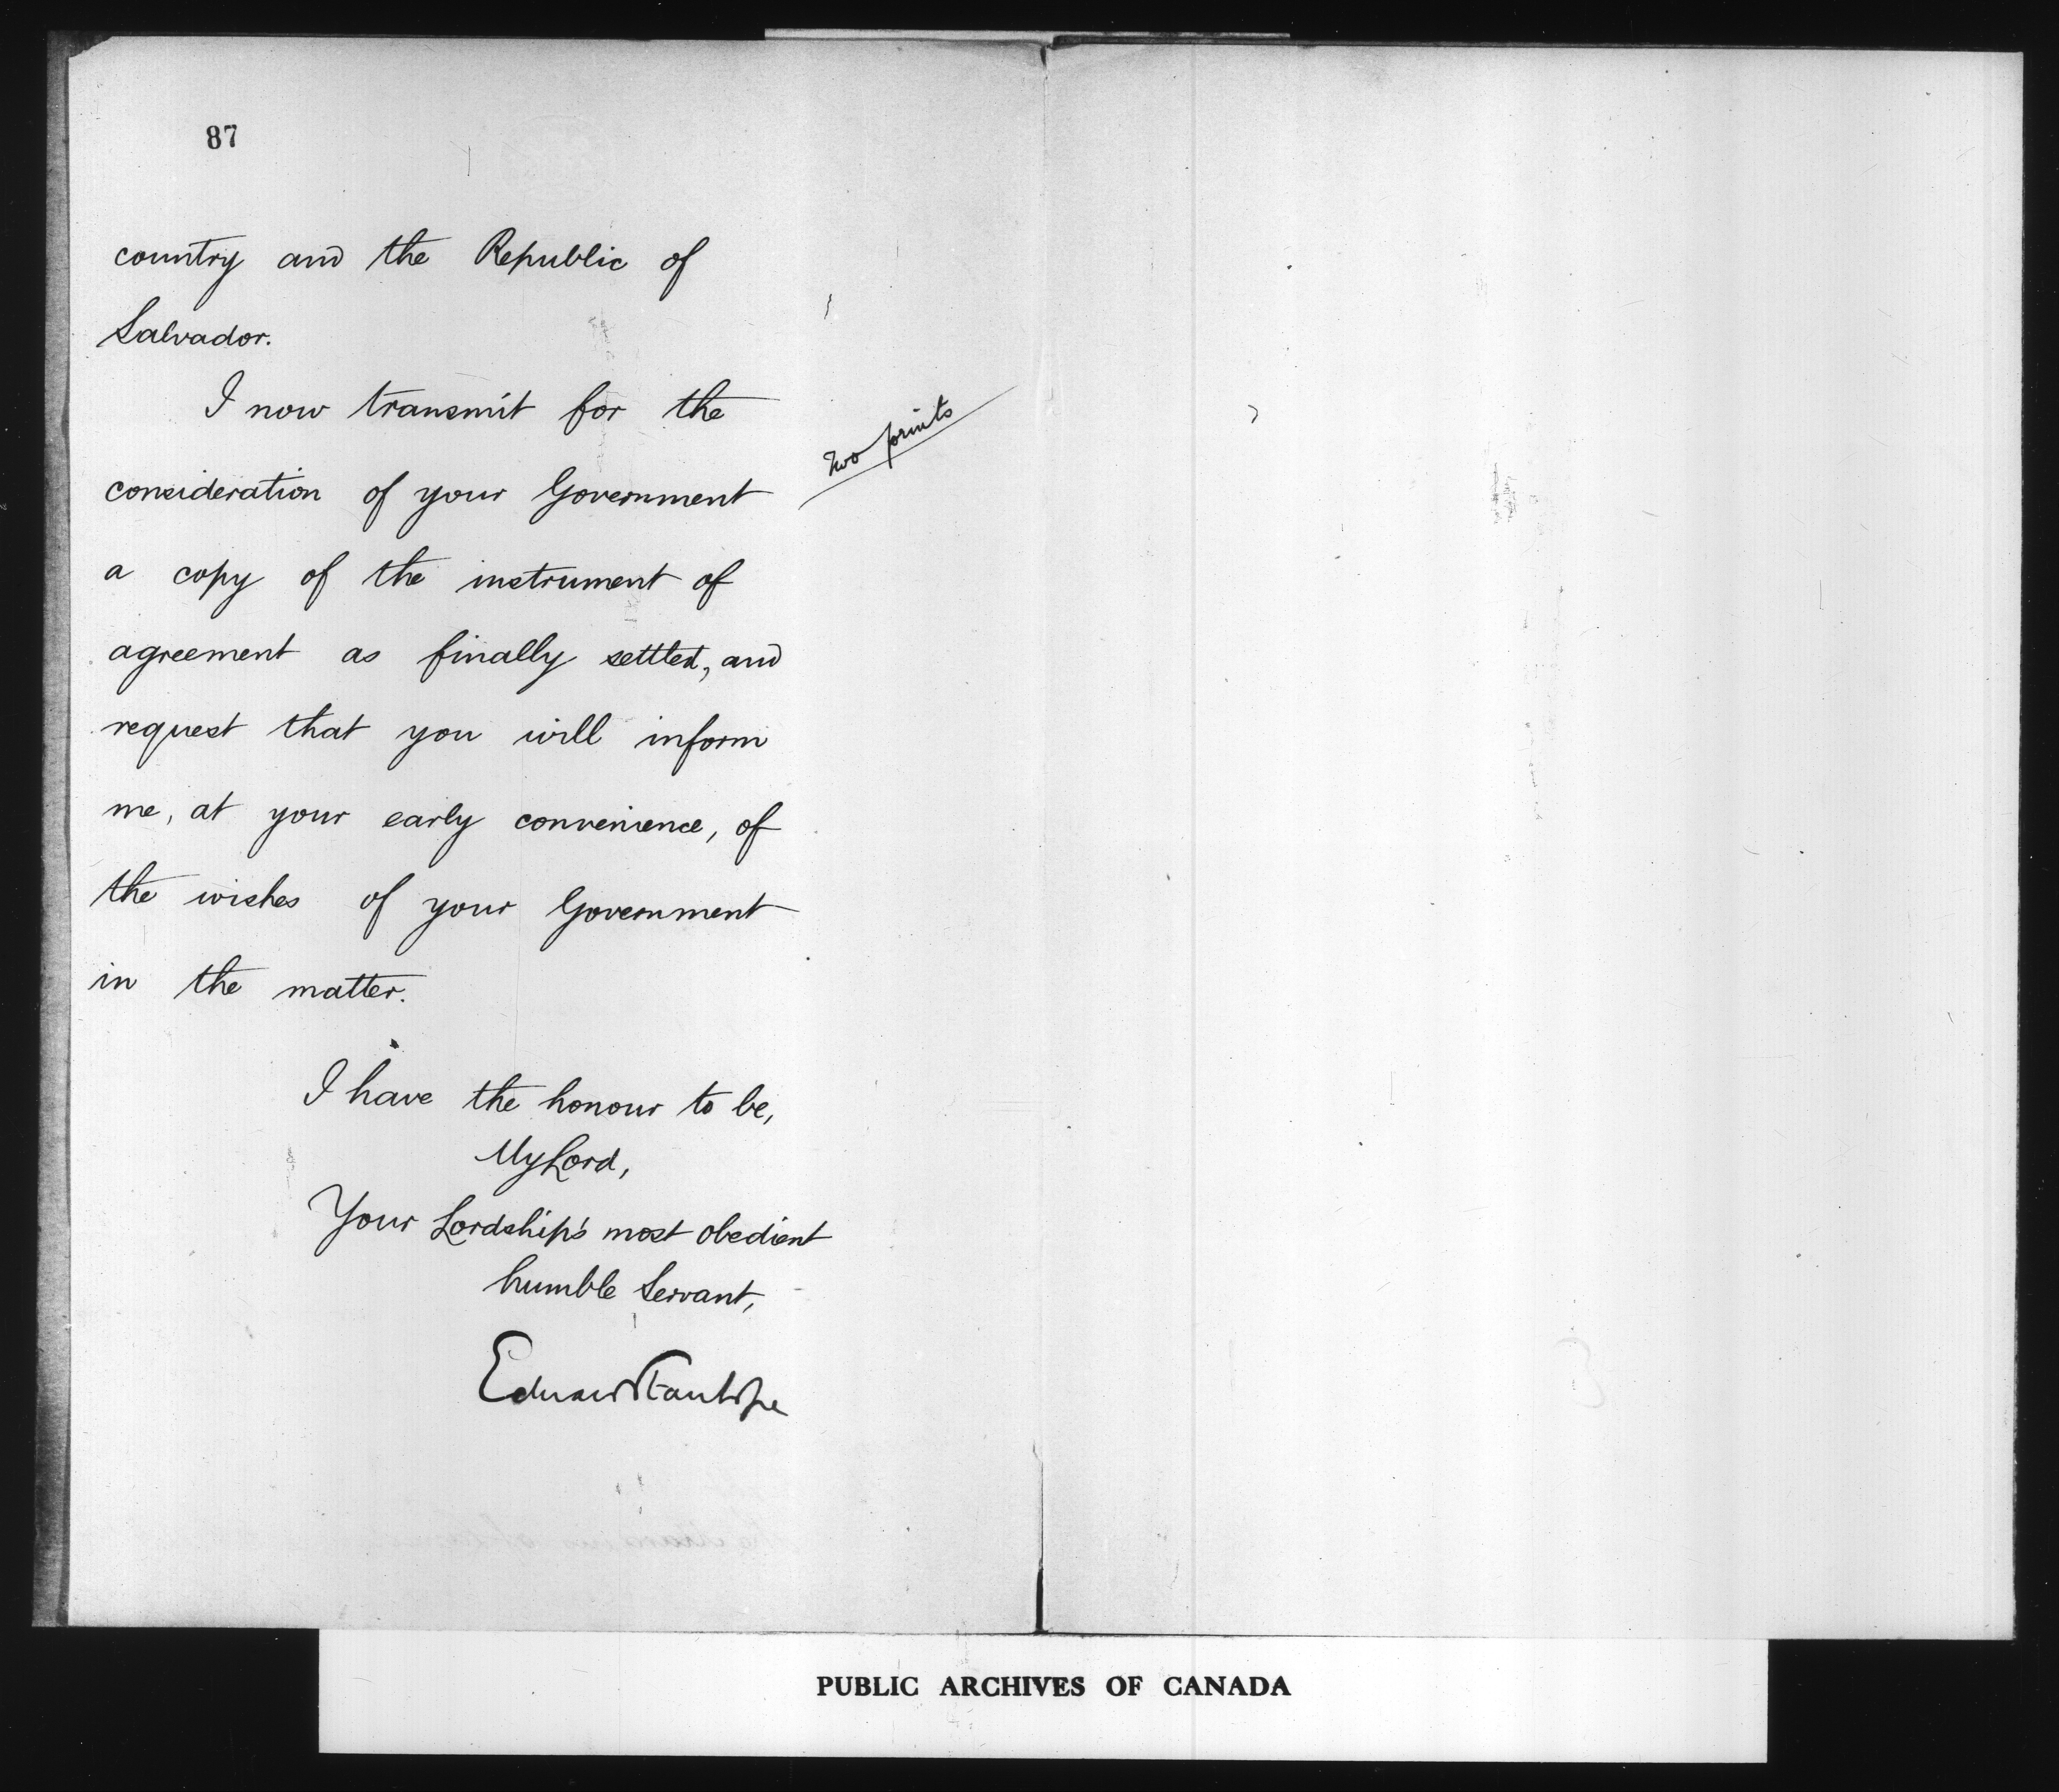 87
country and the Republic of
Salvador.
I now transmit for the
two prints
consideration of your Government
a copy of the instrument of
agreement as finally settled, and
request that you will inform
me, at your early convenience, of
the wishes of your Government
in the matter.
I have the honour to be,
My Lord,
Your Lordship's most obedient
humble Servant,
Edward Stanhope
PUBLIC ARCHIVES OF CANADA